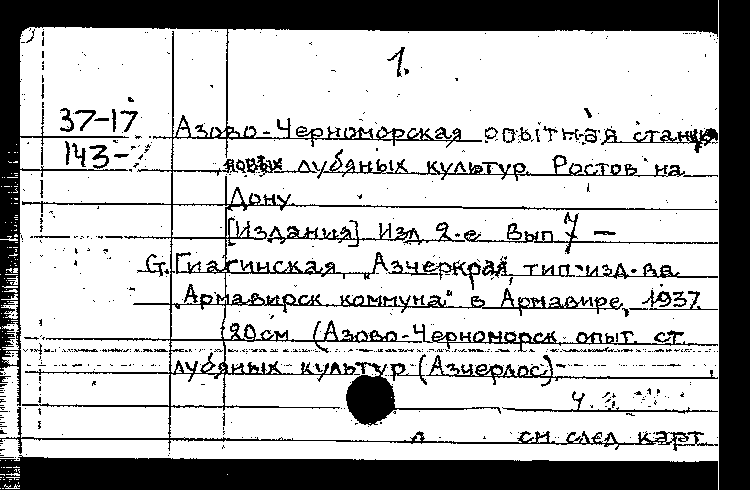 1.
37-17
143-
Азово-Черноморская опытная станция
новых лубяных культур. Ростов на
Дону.
[Издания] Изд. 2-е Вып 7 —
G. Гиагинская, „Азчеркрая, тип. изд-ва
„Армавирск. коммуна" в Армавире, 1937.
20см. (Азово-Черноморск. опыт. ст.
лубяных культур (Азчерлос)-
см. след. карт.